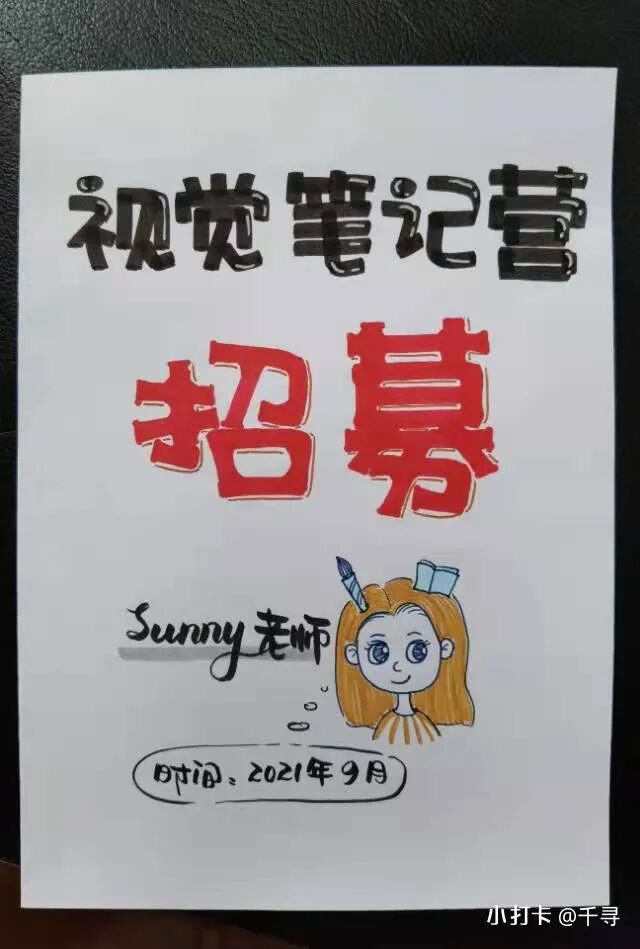 视觉笔记营
招募
Sunny老师
时间：2021年9月
小打卡 @千寻